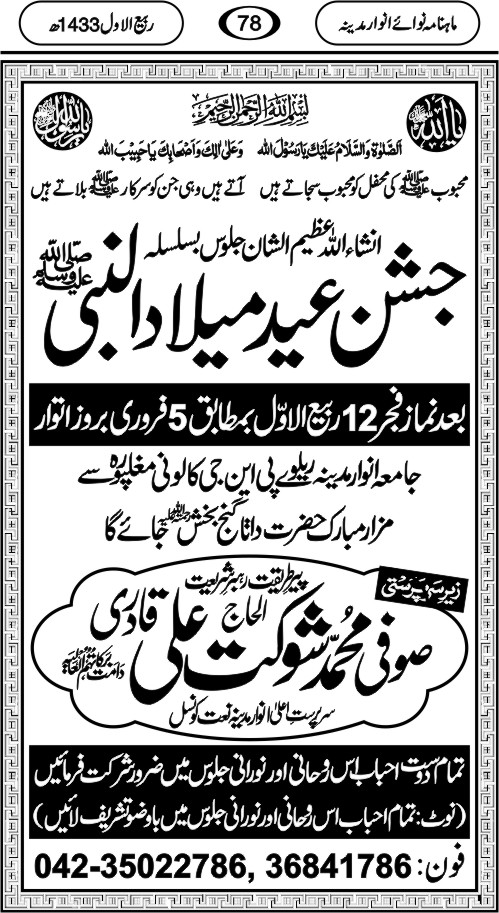 ماہنامہ نوائے انوار مدینہ
78
ربیع الاول 1433ھ
بسم اللہ الرحمن الرحیم
یا اللہ
یا رسول اللہ
الصلوٰۃ والسلام علیک یا رسول اللہ وعلیٰ الک واصحابک یا حبیب اللہ
محبوب ﷺ کی محفل کو محبوب سجاتے ہیں آتے ہیں وہی جن کو سرکار ﷺ بلاتے ہیں
انشاء اللہ عظیم الشان جلوس بسلسلہ
جشن عید میلاد النبی صلی اللہ علیہ وسلم
بعد نماز فجر 12 ربیع الاوّل بمطابق 5 فروری بروز اتوار
جامعہ انوار مدینہ ریلوے پی این جی کالونی مغلپورہ سے
مزار مبارک حضرت داتا گنج بخش رحمۃ اللہ علیہ جائے گا
زیر سرپرستی
پیر طریقت رہبر شریعت
الحاج
صوفی محمد شوکت علی قادری دامت برکاتہم العالیہ
سرپرست اعلیٰ انوار مدینہ نعت کونسل
تمام دوست احباب اس روحانی اور نورانی جلوس میں ضرور شرکت فرمائیں
(نوٹ: تمام احباب اس روحانی اور نورانی جلوس میں باوضو تشریف لائیں)
فون: 042-35022786, 36841786